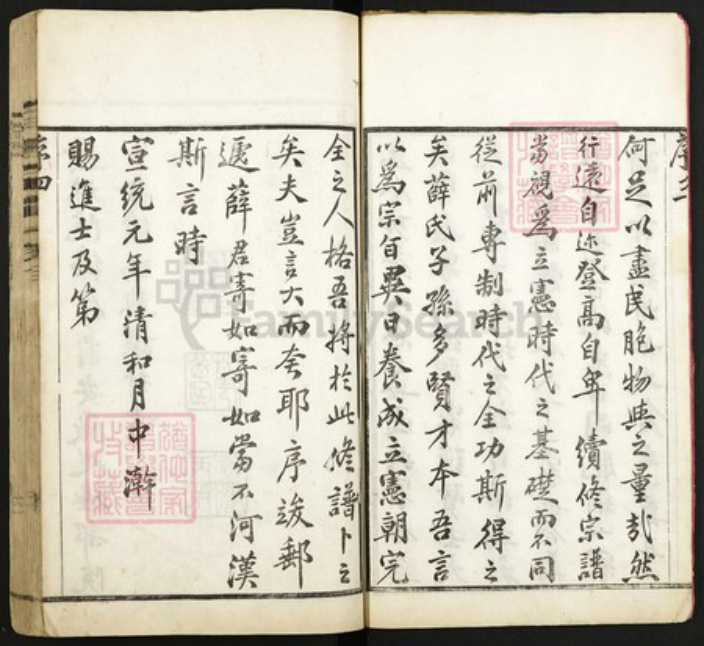 何足以盡民胞物與之量哉然
行遠自迩登高自卑續修宗譜
當視爲立憲時代之基礎而不同
從前專制時代之全功斯得之
矣薛氏子孫多賢才本吾言
以爲宗旨異日養成立憲朝完
全之人格吾將於此修譜卜之
矣夫豈言大而夸耶序竣郵
遞薛君寄如寄如當不河漢
斯言時
宣統元年清和月中澣
賜進士及第
序四
FamilySearch